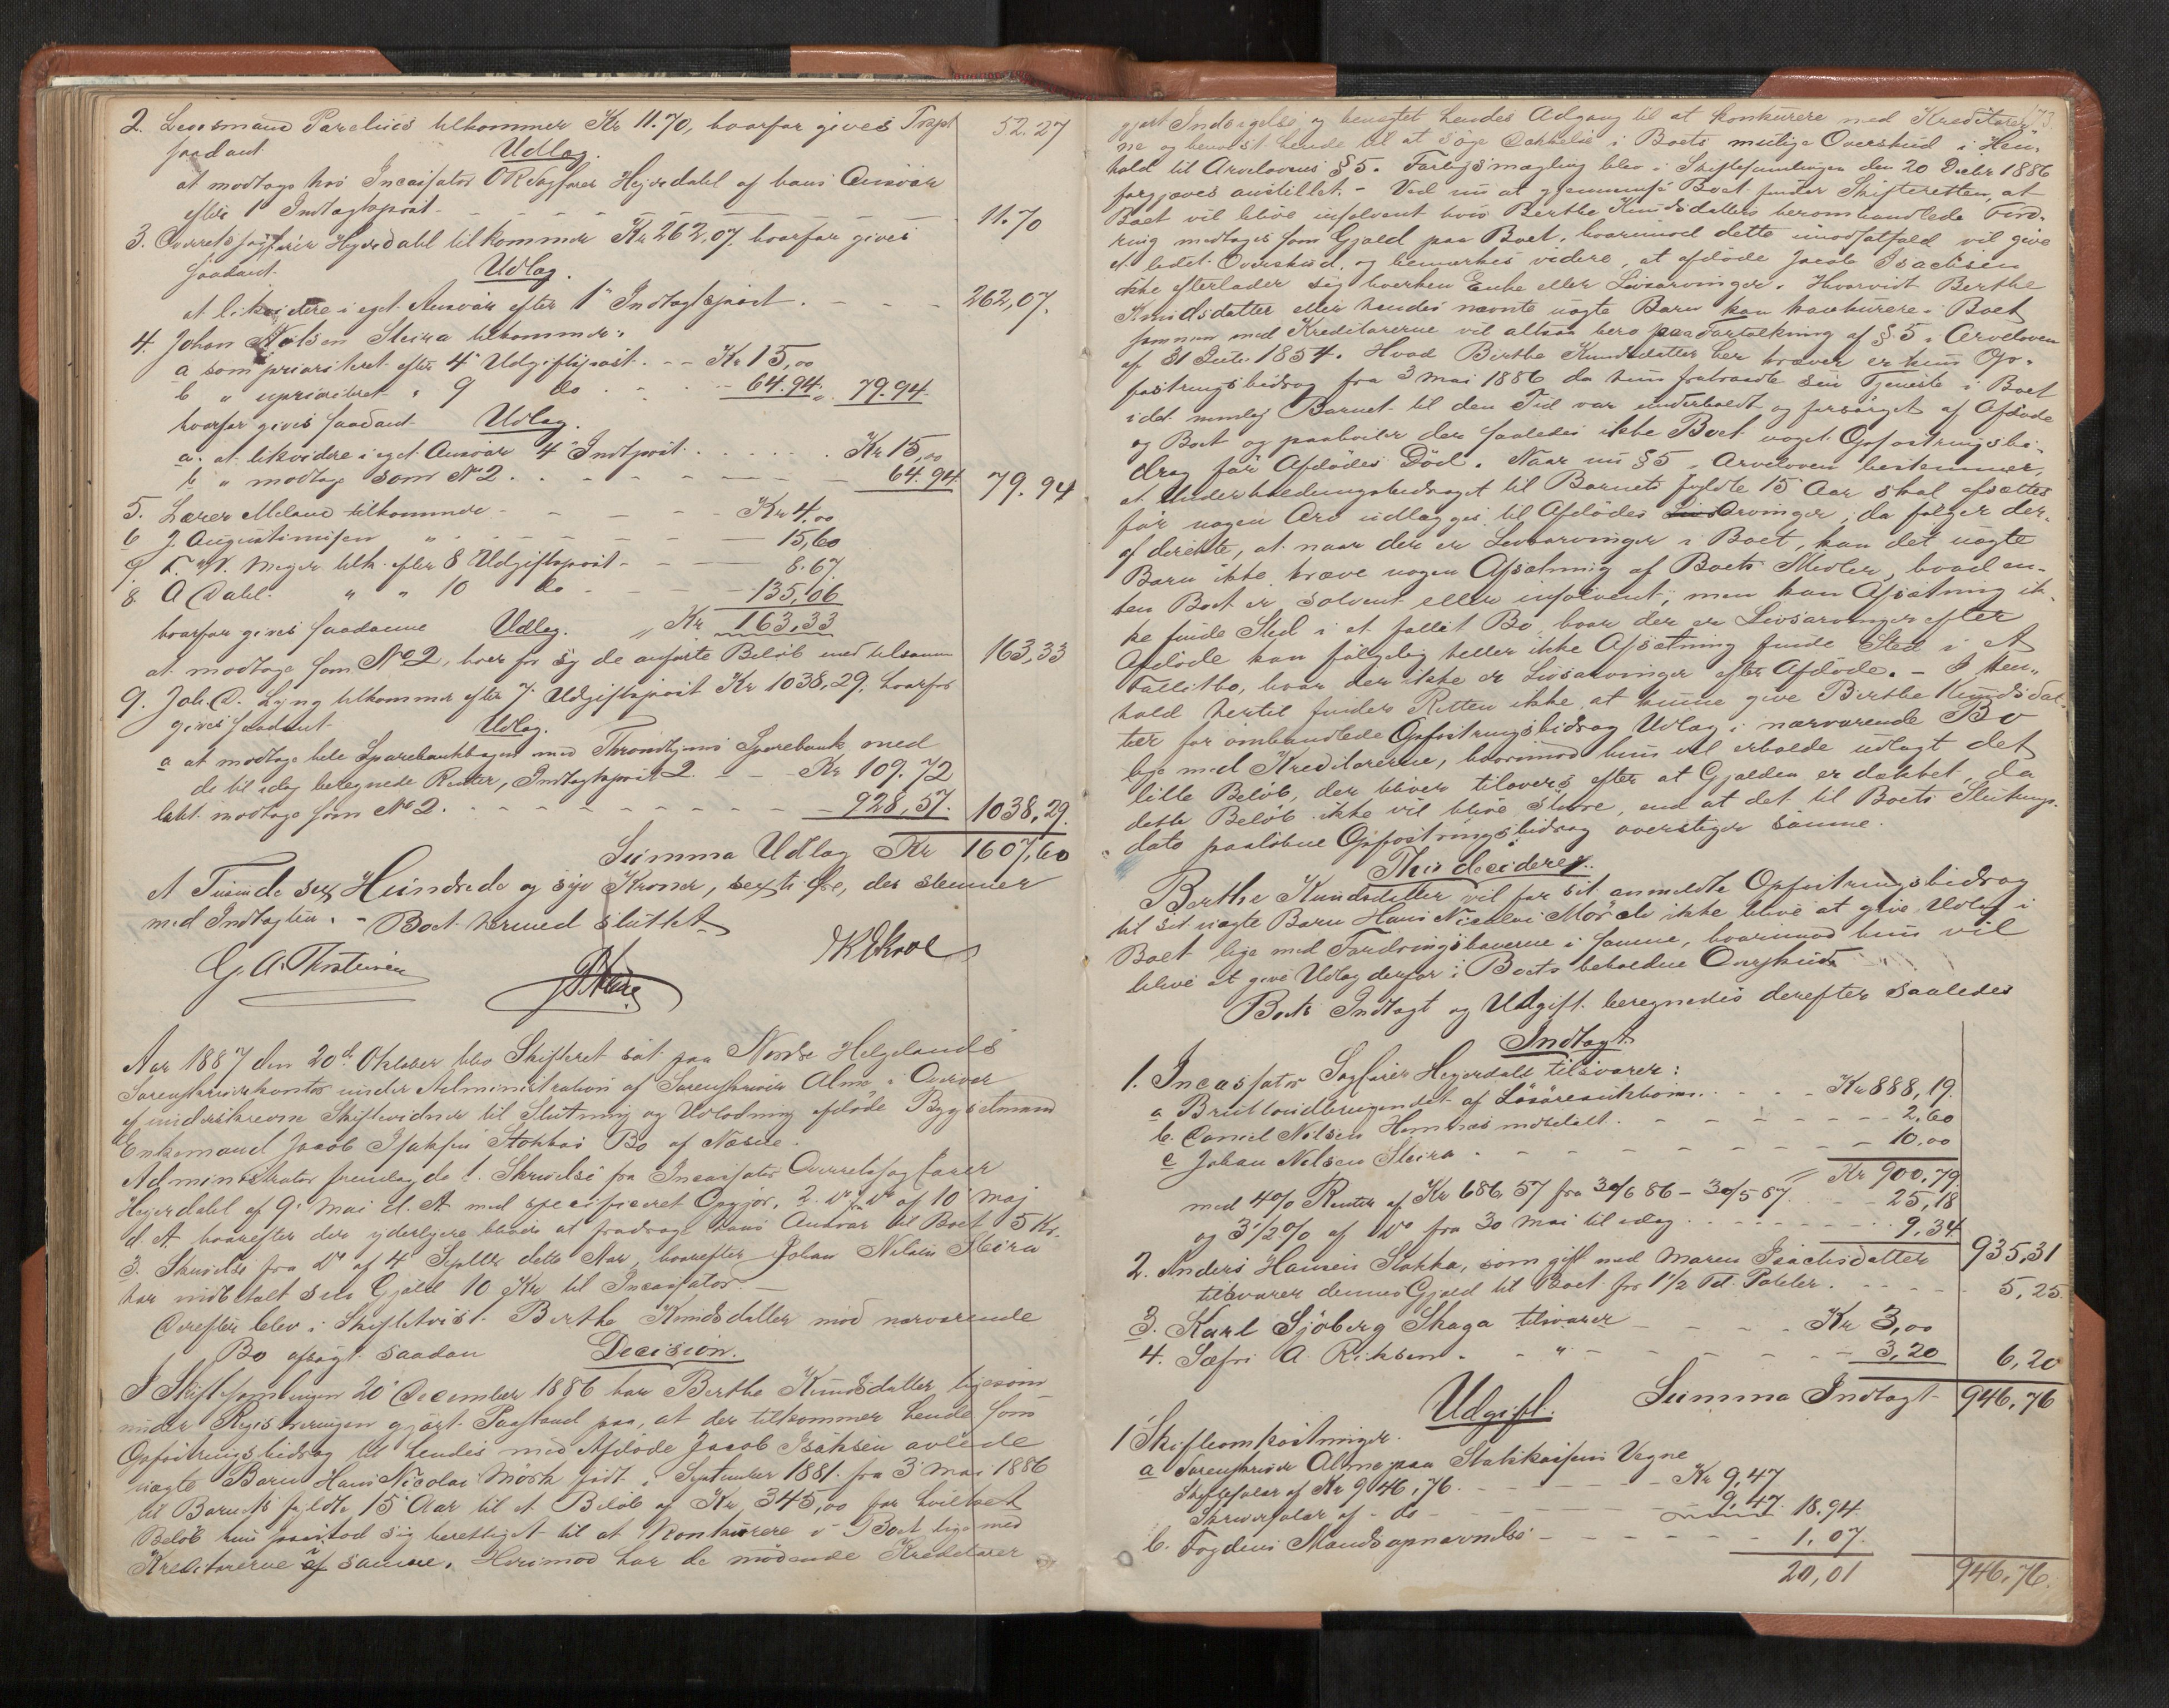 2. Lensmand Parelius tilkommer Kr 11.70, hvorfor gives Trspt 52.27
saadant Udlæg.
at modtage hos Incassator ORsagfører Hejerdahl af hans Ansvar
efter 1 Indtægtspost - - - 11.70
3. Overretssagfører Hejerdahl tilkommer Kr 262,07. hvorfor gives
saadant Udlæg.
at likvidere i eget Ansvar efter 1 Indtægtspost. - - - 262,07.
4. Johan Nilsen Steira tilkommer:
a som prioriteret efter 4 Udgiftspost. - - Kr 15,00
b " uprioriteret " 9 do - - 64.94. 79.94.
hvorfor gives saadant Udlæg.
a. at likvidere i eget Ansvar 4 Indtpost. . . . Kr 15,00
b " modtage som No 2. - - - 64.94 79.94
5. Lærer Meland tilkommer - - - Kr 4,00
6 J. Augustinusen " - - - 15,60
7 T. W. Meyer tilk. efter 8 Udgiftspost - - - 8.67
8. A Dahl. " " 10 do - - - 135,06
hvorfor gives saadanne Udlæg. " Kr 163,33
at modtage som No 2, hver for sig de anførte Beløb med tilsamm 163,33
9. Joh. D. Lyng tilkommer efter 7. Udgiftspost Kr 1038,29, hvorfor
gives saadant Udlæg.
a at modtage hele Sparebankbogen med Throndhjems Sparebank med
de til idag beregnede Renter, Indtægtspost 2. - - Kr 109.72
b at modtage som No 2. - - - 928,57. 1038,29.
Summa Udlæg Kr 1607,60
et Tusinde sex Hundrede og syv Kroner, sexti Øre, der stemmer
med Indtægten. - Boet hermed sluttet
G. A. Thorsteinsen
Aar 1887 den 20de Oktober blev Skifteret sat paa Nordre Helgelands
Sorenskriverkontor under Administration af Sorenskriver Alme i Overvær
af underskrevne Skiftevidner til Slutning og Udlodning afdøde Bygselmand
Enkemand Jacob Isaksen Stokkas Bo af Næsne.
Administrator fremlagde 1. Skrivelse fra Incassator Overretssagfører
Hejerdahl af 9. Mai d. A med specificeret Opgjør, 2. do fra do af 10 Maj
d. A hvorefter der yderligere bliver at fradrage hans Ansvar til Boet 5 Kr.
3. Skrivelse fra do af 4 dette Aar, hvorefter Johan Nilsen Steira
har indbetalt sin Gjæld 10 Kr til Incassator. -
Derefter blev i Skiftetvist Berthe Knudsdatter mod nærværende
Bo afsagt saadan Decision.
I Skiftesamlingen 20 December 1886 har Berthe Knudsdatter ligesom
under Registreringen gjort Paastand paa, at der tilkommer hende som
Opfostringsbidrag til hendes med Afdøde Jacob Isaksen avlede
uægte Barn Hans Nicolai Mørk født i September 1881. fra 3 Mai 1886
til Barnets fyldte 15 Aar til et Beløb af Kr, 345,00 for hvilket
Beløb hun paastod sig berettiget til at konkurere i Boet lige med
Kreditorerne i samme. Herimod har de mødende Kreditorer
gjort Indsigelse og benegtet hendes Adgang til at konkurere med Kreditorer-
ne og henvist hende til at søge Dækkelse i Boets mulige Overskud i Hen-
hold til Arvelovens § 5. Forligsmægling blev i Skiftesamlingen den 20 Decbr 1886
forgjæves anstillet. - Ved nu at gjennemgå Boet finder Skifteretten, at
Boet vil blive insolvent hvis Berthe Knudsdatters heromhandlede Ford-
ring medtages som Gjæld paa Boet, hvorimod dette imodsatfald vil give
et lidet Overskud, og bemærkes videre, at afdøde Jacob Isachsen
ikke efterlader sig hverken Enke eller Livsarvinger. Hvorvidt Berthe
Knudsdatter eller hendes nævnte uægte Barn kan konkurere i Boet
sammen med Kreditorerne vil altsaa bero paa Fortolkning af § 5 i Arveloven
af 31 Juli 1854. Hvad Birthe Knudsdatter her kræver er kun Op-
fostringsbidrag fra 3 Mai 1886 da hun fratraadte sin Tjeneste i Boet
idet nemlig Barnet til den Tid var underholdt og forsørget af Afdøde
og Boet og paahviler der saaledes ikke Boet noget Opfostringsbi-
drag før Afdødes Død. Naar nu § 5 i Arveloven bestemmer,
at Underholdningsbidraget til Barnets fyldte 15 Aar skal afsættes
før nogen Arv udlægges til Afdødes Arvinger, da følger der-
af direkte, at naar der er Livsarvinger i Boet, kan det uægte
Barn ikke kræve nogen Afsætning af Boets Midler, hvad en-
ten Boet er solvent eller insolvent, men kan Afsætning ik-
ke finde Sted i et fallit Bo, hvor der er Livsarvinger efter
Afdøde kan følgelig heller ikke Afsætning finde Sted i et
Fallitbo, hvor der ikke er Livsarvinger efter Afdøde. - I Hen-
hold hertil finder Retten ikke at kunne give Birthe Knudsdat-
ter for omhandlede Opfostringsbidrag Udlæg i nærværende Bo
lige med Kreditorerne, hvorimod hun vil erholde udlagt det
lille Beløb, der bliver tilovers efter at Gjælden er dækket, da
dette Beløb ikke vil blive større, end at det til Boets Slutnings-
dato paaløbne Opfostringsbidrag overstiger samme.
Thi decideres:
Berthe Knudsdatter vil for sit anmeldte Opfostringsbidrag
til sit uægte Barn Hans Nicolai Mørch ikke blive at give Udlæg i
Boet lige med Fordringshaverne i samme, hvorimod hun vil
blive at give Udlæg derfor i Boets beholdne Overskud.
Boets Indtægt og Udgift beregnedes derefter saaledes
Indtægt.
1. Incassator Sagfører Hejerdahl tilsvarer:
a Bruttoudbringendet af Løsøreauktionen. . . - Kr 888,19.
b. Daniel Nilsen Hemnæs indbetalt. - - - 2,60
c Johan Nilsen Steira - - - 10.00
Kr 900,79
med 4% Renter af Kr 686,57 fra 30/6 86 - 30/5 87. . . 25,18
og 3 1/2 % af do fra 30 Mai til idag . . . 9,34 935,31
2. Anders Hansen Stokka, som gift med Maren Isachsdatter
tilsvarer dennes Gjæld til Boet for 1 1/2 Td. Poteter. - - - 5,25
3. Karl Sjøberg Skaga tilsvarer - - - Kr 3,00
4. Sæfri A. Riksen. - " - - - 3,20 6,20
Summa Indtægt 946,76
Udgift.
1 Skifteomkostninger.
a Sorenskriver Alme paa Statskassens Vegne
Skiftesalær af Kr 946,76. - - - Kr 9,47
Skriversalær af do - - - 9,47. 18.94.
b. Fogdens Mandsopnævnelse - - - 1,07.
20,01 946,76.